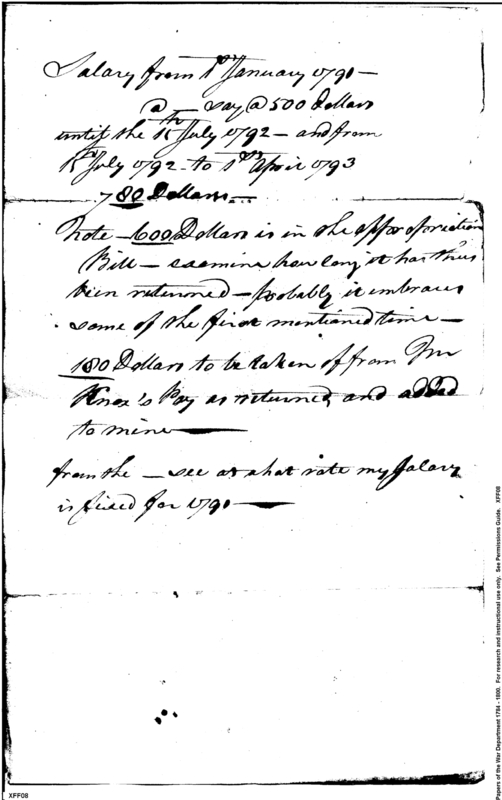 Salary from 1st January 1791 —
@ — say @ 500 Dollars
until the 15th July 1792 — and from
15th July 1792 — to 1st April 1793
780 Dollars —
Note — 600 Dollars is in the appropriation
Bill — examine how long it has thus
been returned — probably it embraces
some of the first mentioned time —
180 Dollars to be taken of from
Knox's Pay as returned, and added
to mine —
from the — see at what rate my Salary
is fixed for 1791 —
XFF08
Papers of the War Department 1784 - 1800. For research and instructional use only. See Permissions Guide. XFF08